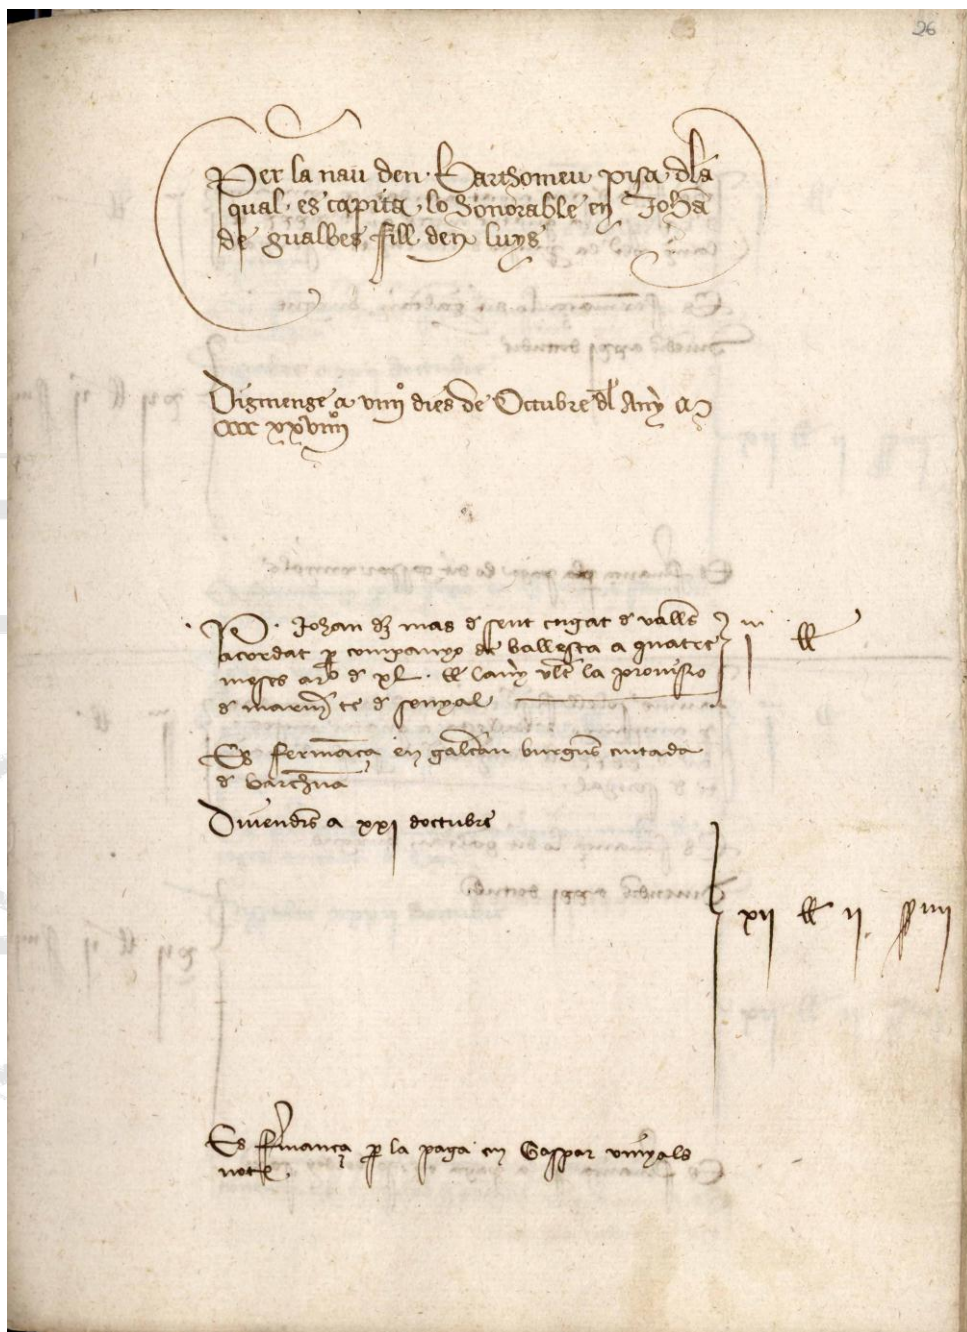 26
Per la nau den Barthomeu pisa dla
qual es capita lo honorable en Johã
de gualbes fill den luys
Digmenge a viiii dies de Octubre dl Any M
cccc xxviiii
P. Johan dz mas d sent cugat d valls
acordat p companyo de ballesta a quatre
meses arō d xl ll lany vltͣ la provisio
d mariñ te d senyal
iii ll
Es fermãça en galcãn burgues ciutada
d barchna
Divendres a xxi doctubre
xii ll ii ss iiii
Es fmança p la paga en Gaspar vinyals
not